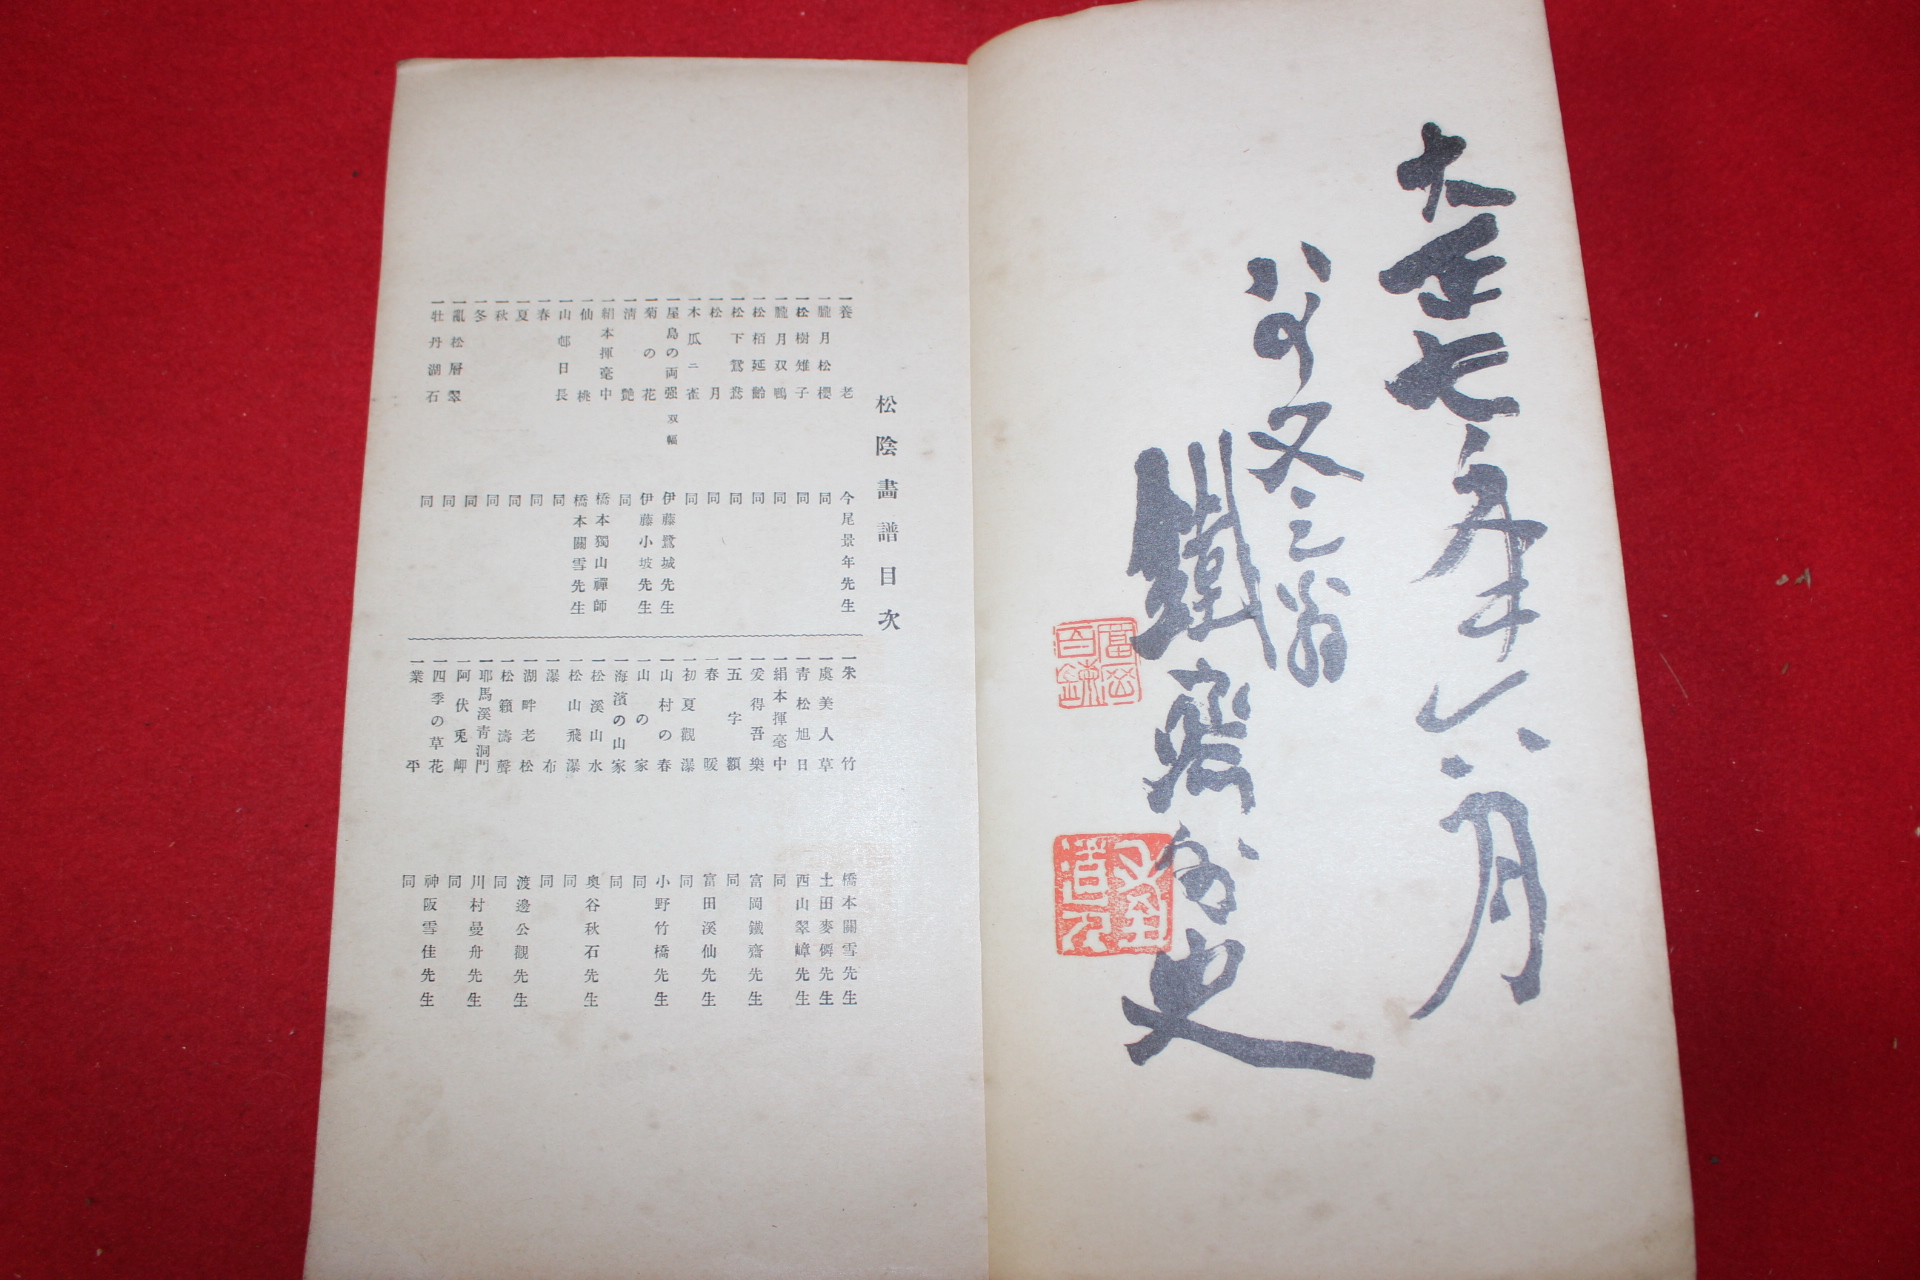 大正七年六月
八十又三翁
鐵齋外史
松陰畫譜目次
一養老 今尾景年先生
一朧月松櫻 同
一松樹雉子 同
一朧月双鴨 同
一松栢延齡 同
一松下鴛鴦 同
一松月 同
一木瓜ニ雀 同
一屋島の両强 双幅 伊藤鷺城先生
一菊の花 伊藤小坡先生
一淸艶 同
一絹本揮毫中 橋本獨山禪師
一仙桃 橋本關雪先生
一山邨日長 同
一春 同
一夏 同
一秋 同
一冬 同
一亂松層翠 同
一牡丹湖石 同
一朱竹 橋本關雪先生
一虞美人草 土田麥僊先生
一靑松旭日 西山翠嶂先生
一絹本揮毫中 同
一爰得吾樂 富岡鐵齋先生
一五字額 同
一春暖 富田溪仙先生
一初夏觀瀑 同
一山村の春 小野竹橋先生
一山の家 同
一海濱の山家 同
一松溪山水 奥谷秋石先生
一松山飛瀑 同
一瀑布 同
一湖畔老松 渡邊公觀先生
一松籟濤聲 同
一耶馬溪靑洞門 川村曼舟先生
一阿伏兎岬 同
一四季の草花 神阪雪佳先生
一業平 同